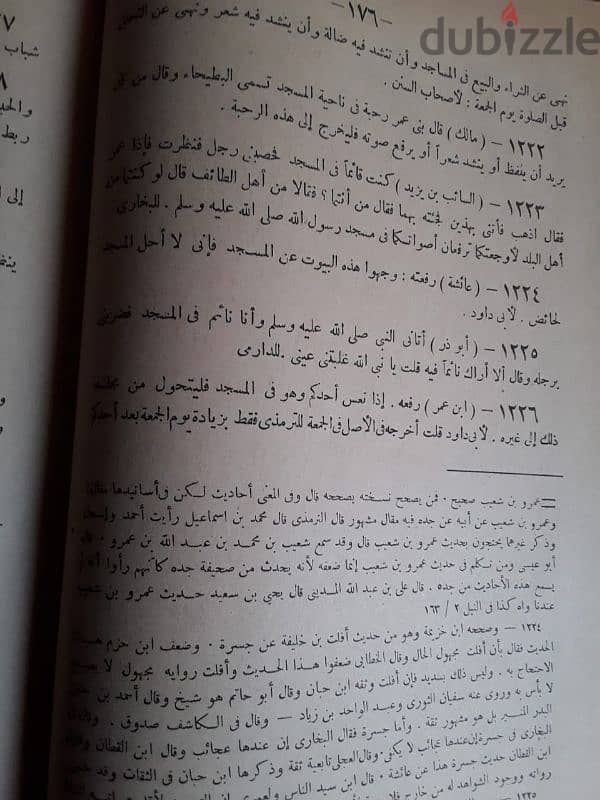 dubizzle
— ١٧٦ —
نهى عن الشراء والبيع فى المساجد وأن تنشد فيه ضالة وأن ينشد فيه شعر ونهى عن
قبل الصلوة يوم الجمعة : لأصحاب السنن .
١٢٢٢ — ( مالك ) قال بنى عمر رحبة فى ناحية المسجد تسمى البطيحاء وقال من كان
يريد أن يلغط أو ينشد شعراً أو يرفع صوته فليخرج إلى هذه الرحبة .
١٢٢٣ — ( السائب بن يزيد ) كنت قائماً فى المسجد فحصبنى رجل فنظرت فإذا عمر
فقال اذهب فأتنى بهذين فجئته بهما فقال من أنتما ؟ فقالا من أهل الطائف قال لو كنتما من
أهل البلد لأوجعتكما ترفعان أصواتكما فى مسجد رسول الله صلى الله عليه وسلم . للبخارى
١٢٢٤ — ( عائشة ) رفعته : وجهوا هذه البيوت عن المسجد فإنى لا أحل المسجد
لحائض . لأبى داود .
١٢٢٥ — ( أبو ذر ) أتانى النبى صلى الله عليه وسلم وأنا نائم فى المسجد فضربنى
برجله وقال ألا أراك نائماً فيه قلت يا نبى الله غلبتنى عينى . للدارمى
١٢٢٦ — ( ابن عمر ) رفعه . إذا نعس أحدكم وهو فى المسجد فليتحول من مجلسه
ذلك إلى غيره . لأبى داود قلت أخرجه فى الأصل فى الجمعة للترمذى فقط بزيادة يوم الجمعة بعد أحدكم
= عمرو بن شعيب صحيح . فمن يصحح نسخته يصححه قال وفى المعنى أحاديث لكن فى أسانيدها مقال
وعمرو بن شعيب عن أبيه عن جده فيه مقال مشهور قال الترمذى قال محمد بن اسماعيل رأيت أحمد وإسحق
وذكر غيرهما يحتجون بحديث عمرو بن شعيب قال وقد سمع شعيب بن محمد بن عبد الله بن عمرو . قال
أبو عيسى ومن تكلم فى حديث عمرو بن شعيب إنما ضعفه لأنه يحدث من صحيفة جده كأنهم رأوا أنه لم
يسمع هذه الأحاديث من جده . قال على بن عبد الله المدينى قال يحيى بن سعيد حديث عمرو بن شعيب
عندنا واه كذا فى النيل ٢ / ١٦٣
١٢٢٤ — وصححه ابن خزيمة وهو من حديث أفلت بن خليفة عن جسرة . وضعف ابن حزم هذا
الحديث فقال بأن أفلت مجهول الحال وقال الخطابى ضعفوا هذا الحديث وأفلت روايه مجهول لا يصح
الاحتجاج به . وليس ذلك بسديد فإن أفلت وثقه ابن حبان وقال أبو حاتم هو شيخ وقال أحمد بن حنبل
لا بأس به وروى عنه سفيان الثورى وعبد الواحد بن زياد — وقال فى الكاشف صدوق . وقال فى
البدر المنير بل هو مشهور ثقة . وأما جسرة فقال البخارى إن عندها عجائب وقال ابن القطان وقول
البخارى فى جسرة إن عندها عجائب لا يكفى وقال العجلى تابعية ثقة وذكرها ابن حبان فى الثقات وقد حسن
ابن القطان حديث جسرة هذا عن عائشة . قال ابن سيد الناس ولعمرى إن
رواته ووجود الشواهد له من خارج
١٢٢٥
شباب
ربط
إلى